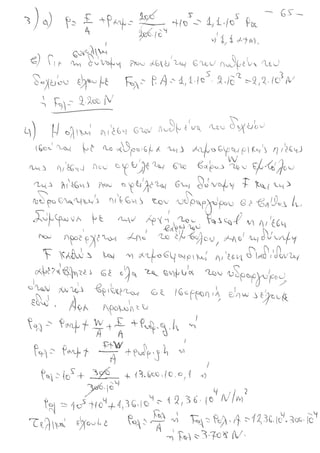 - 65 -
3) α) P = F/A + Pατμ = 200/200·10⁻⁴ + 10⁵ = 1,1·10⁵ Pa
ή 1,1 ατμ.
συνολική
β) Για τη δύναμη που ασκείται στον πυθμένα του
δοχείου έχουμε Fολ = P·A = 1,1·10⁵·2·10⁻² = 2,2·10³ N
ή Fολ = 2200 N
4) Η ολική πίεση στον πυθμένα του δοχείου
ισούται με το άθροισμα της ατμοσφαιρικής πίεσης
της πίεσης που οφείλεται στο βάρος W του εμβόλου
της πίεσης που οφείλεται στη δύναμη F και της
υδροστατικής πίεσης του υδραργύρου σε βάθος h.
Σύμφωνα με την αρχή του Pascal η πίεση
που προέρχεται από το βάρος του εμβόλου, από τη δύναμη
F καθώς και η ατμοσφαιρική πίεση διαδίδονται
αμετάβλητες σε όλα τα σημεία του υδραργύρου,
όταν αυτός βρίσκεται σε ισορροπία, όπως εδώ.
Άρα προκύπτει
Pολ = Pατμ + W/A + F/A + ρυδρ·g·h ή
Pολ = Pατμ + F+W/A + ρυδρ·g·h ή
Pολ = 10⁵ + 300/300·10⁻⁴ + 13.600·10·0,1 ή
Pολ = 10⁵ + 10⁴ + 1,36·10⁴ = 12,36·10⁴ N/m²
Τελικά έχουμε Pολ = Fολ/A ή Fολ = Pολ·A = 12,36·10⁴·300·10⁻⁴
ή Fολ = 3.708 N.